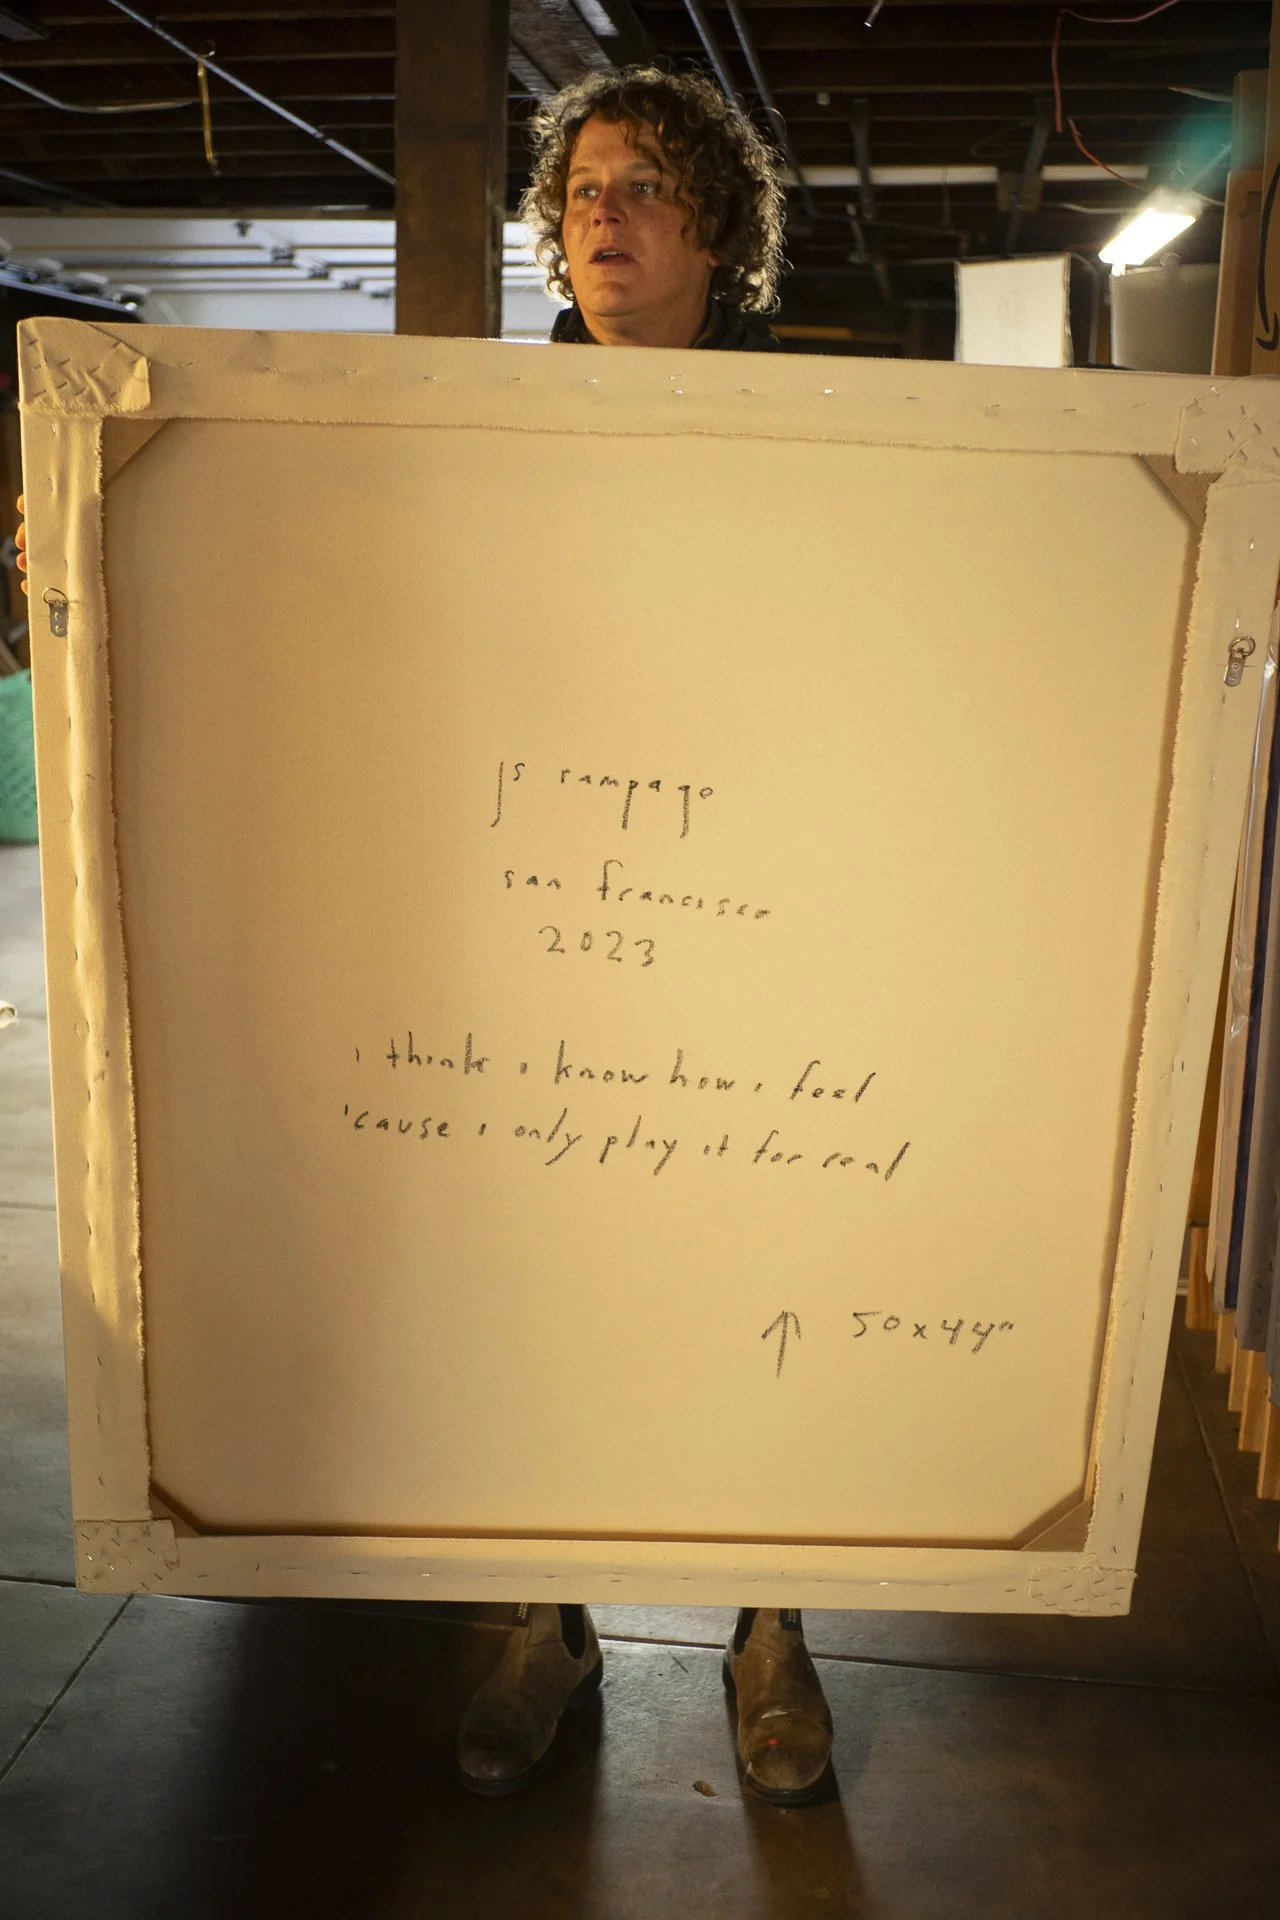 js rampago
san francisco
2023
i think i know how i feel
'cause i only play it for real
↑ 50x44"